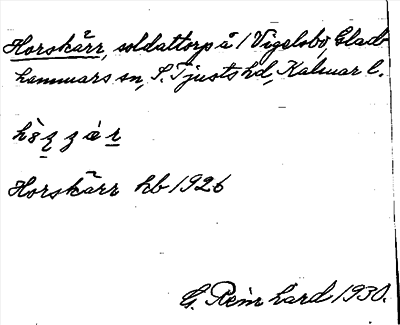 Horskärr, soldattorp å 1 Vigelsbo, Glad-
hammars sn, S. Tjusts hd, Kalmar l.
Horskärr hb 1926
G. Reinhard 1930.